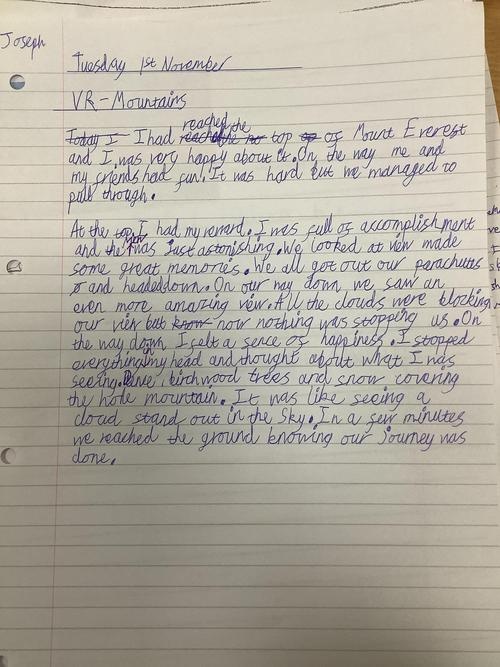 Joseph
Tuesday 1st November
VR-Mountains
Today I I had reached the top of Mount Everest
and I was very happy about it. On the way me and
my friends had fun. It was hard but we managed to
pull through.
At the top I had my reward. I was full of accomplishment
and the view was just astonishing. We looked at vew made
some great memories. We all got out our parachutes
and headed down. On our way down we saw an
even more amazing view. All the clouds were blocking
our view but know now nothing was stopping us. On
the way down I felt a sence of happiness. I stopped
everything in my head and thought about what I was
seeing. Pine, birchwood trees and snow covering
the hole mountain. It was like seeing a
cloud stand out in the sky. In a few minutes
we reached the ground knowing our journey was
done.